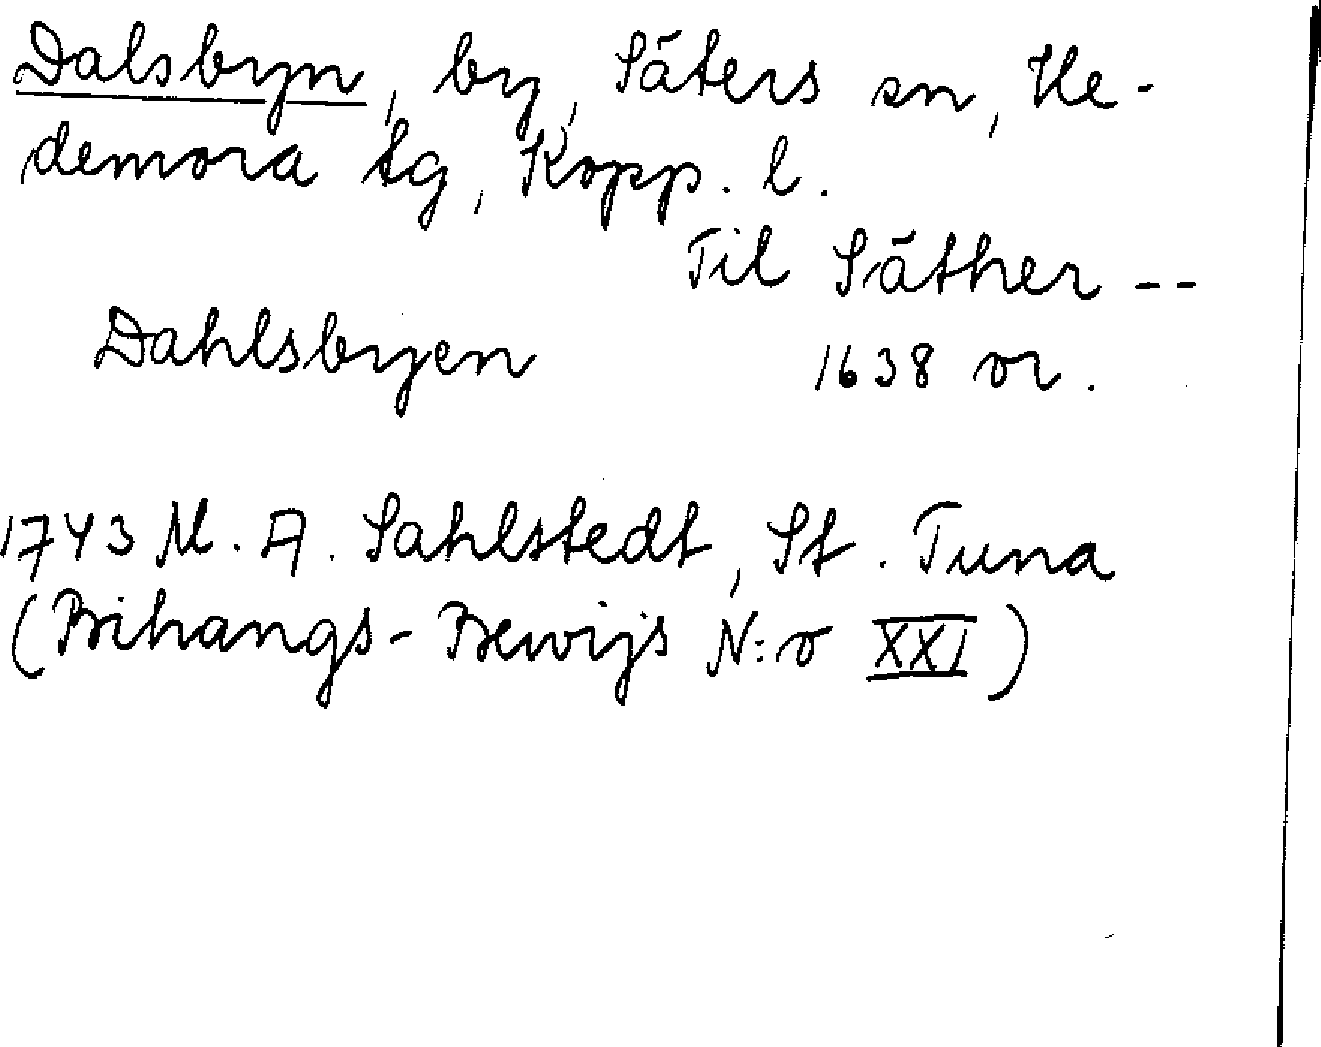 Dalsbyn, by, Säters sn, He-
demora tg, Kopp. l.
Til Säther --
Dahlsbyen 1638 or.
1743 M. A. Sahlstedt, St. Tuna
(Bihangs-Bewijs N:o XXI)